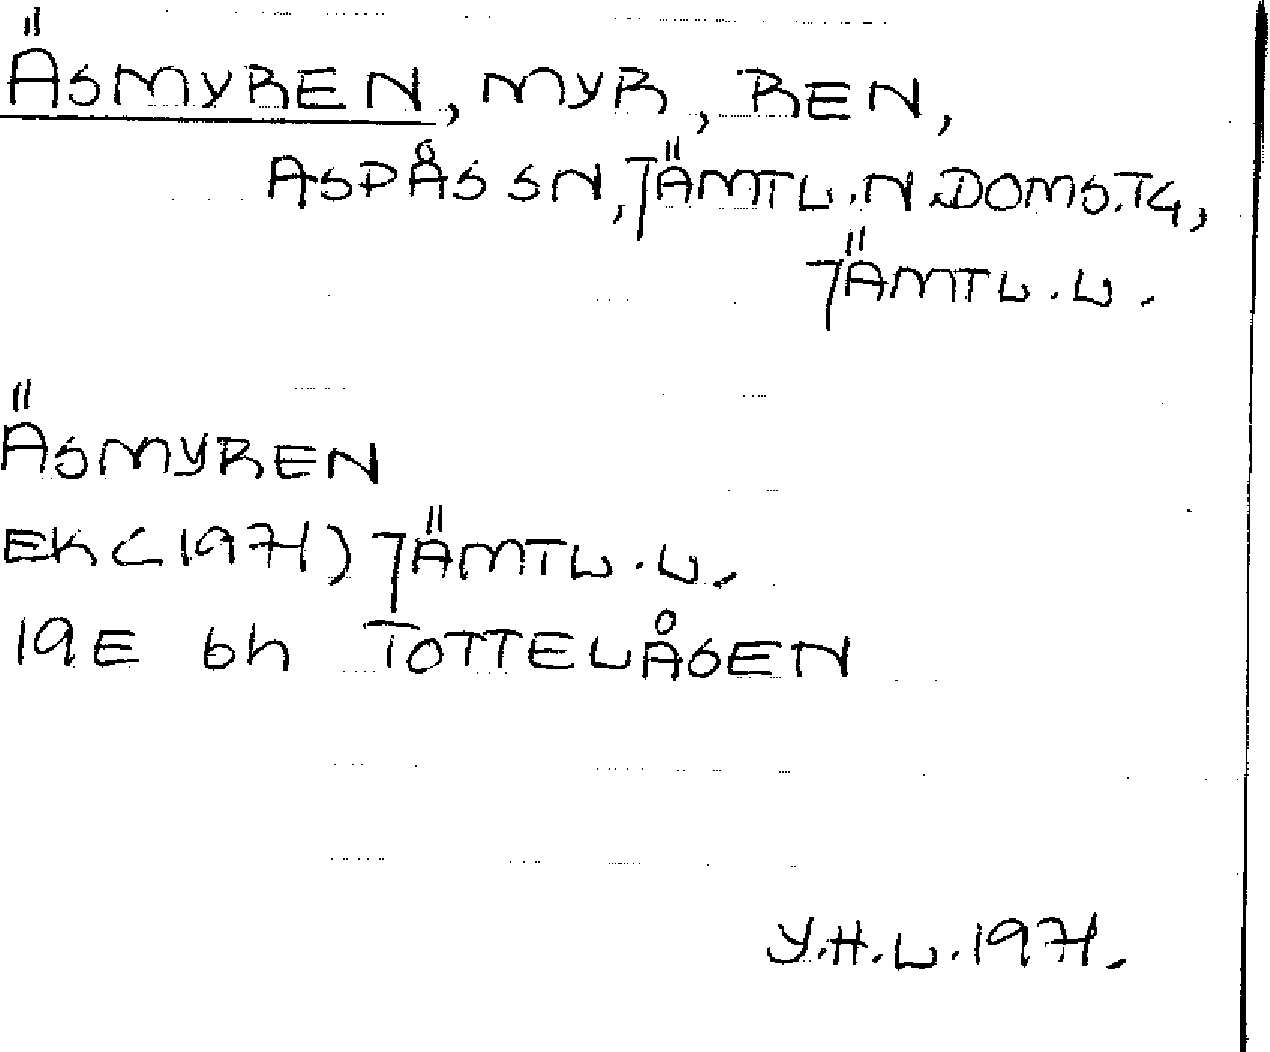 ÄSMYREN, MYR, REN,
ASPÅS SN, JÄMTL. N. DOMS. TG,
JÄMTL. L.
ÄSMYREN
EK (1971) JÄMTL. L.
19E 6h TOTTELÅSEN
Y.H.L. 1971.